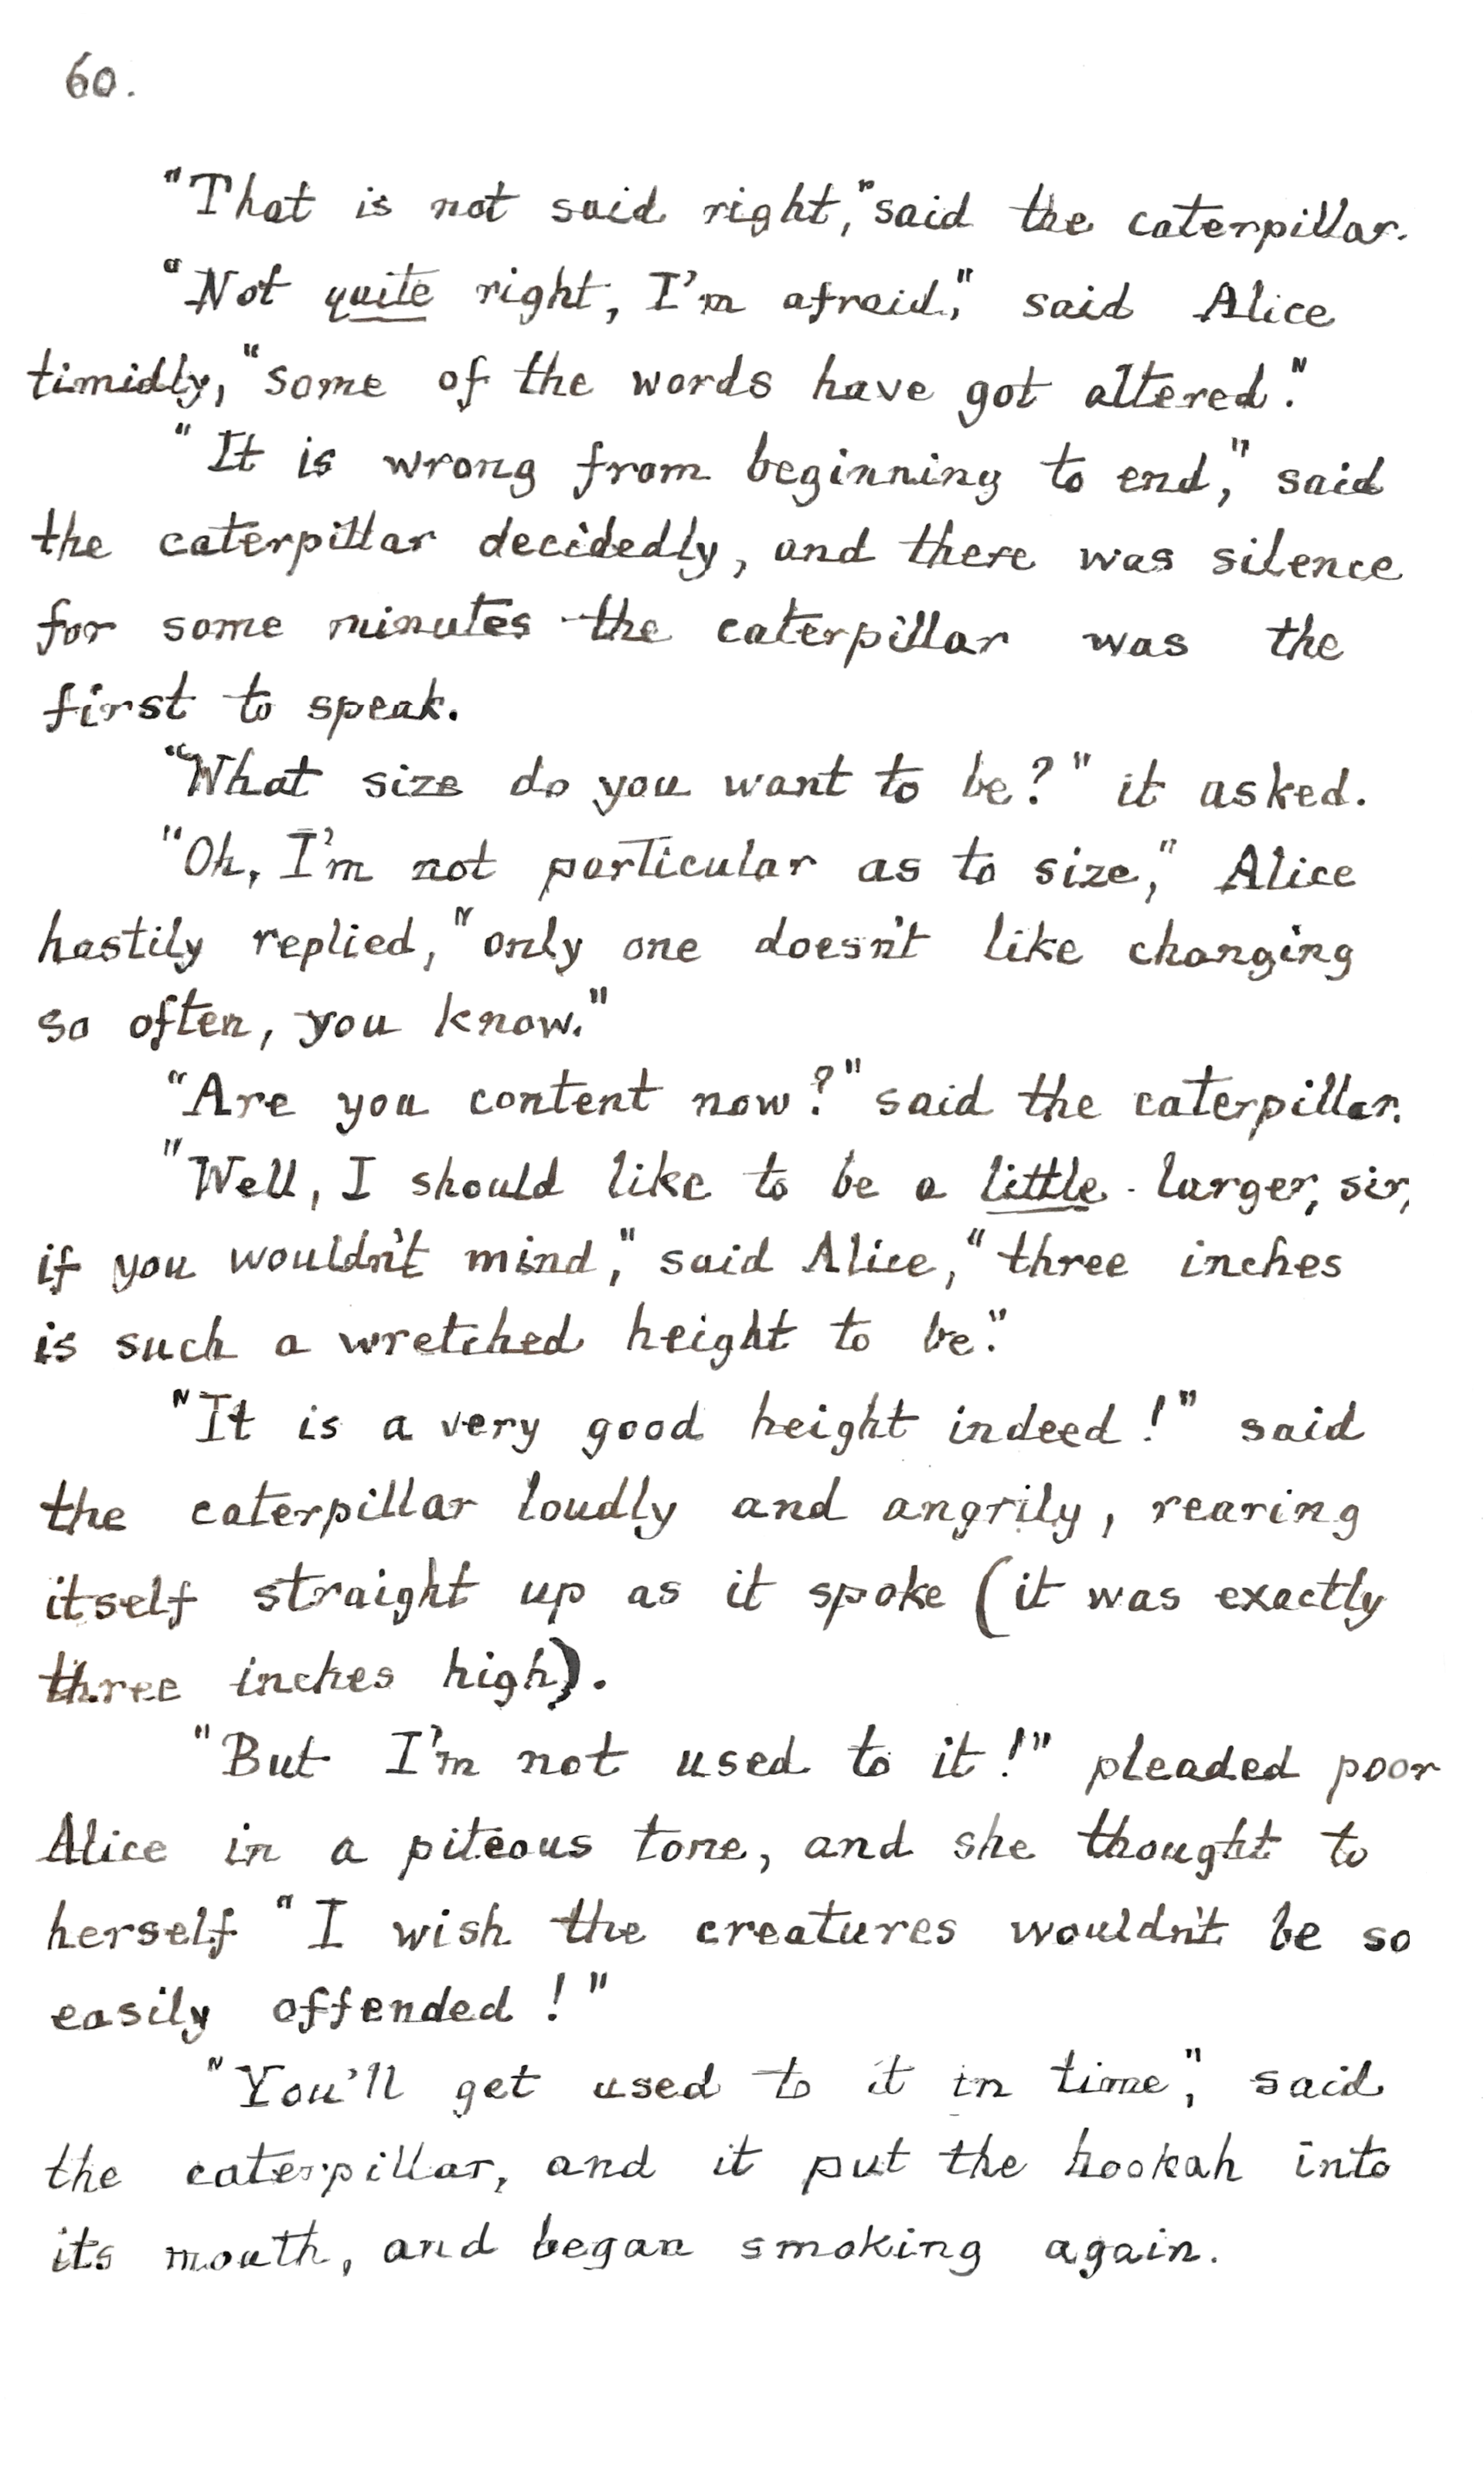 60.
"That is not said right," said the caterpillar.
"Not quite right, I'm afraid," said Alice
timidly, "some of the words have got altered."
"It is wrong from beginning to end," said
the caterpillar decidedly, and there was silence
for some minutes the caterpillar was the
first to speak.
"What size do you want to be?" it asked.
"Oh, I'm not particular as to size," Alice
hastily replied, "only one doesn't like changing
so often, you know."
"Are you content now?" said the caterpillar.
"Well, I should like to be a little larger, sir,
if you wouldn't mind," said Alice, "three inches
is such a wretched height to be."
"It is a very good height indeed!" said
the caterpillar loudly and angrily, rearing
itself straight up as it spoke (it was exactly
three inches high).
"But I'm not used to it!" pleaded poor
Alice in a piteous tone, and she thought to
herself "I wish the creatures wouldn't be so
easily offended!"
"You'll get used to it in time," said
the caterpillar, and it put the hookah into
its mouth, and began smoking again.